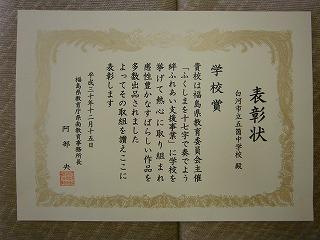 表彰状
白河市立五箇中学校 殿
学校賞
貴校は福島県教育委員会主催
「ふくしまを十七字で奏でよう
絆ふれあい支援事業」に学校を
挙げて熱心に取り組まれ
感性豊かなすばらしい作品を
多数出品されました
よってその取組を讃えここに
表彰します
平成三十年十二月十五日
福島県教育庁県南教育事務所長
阿部 央